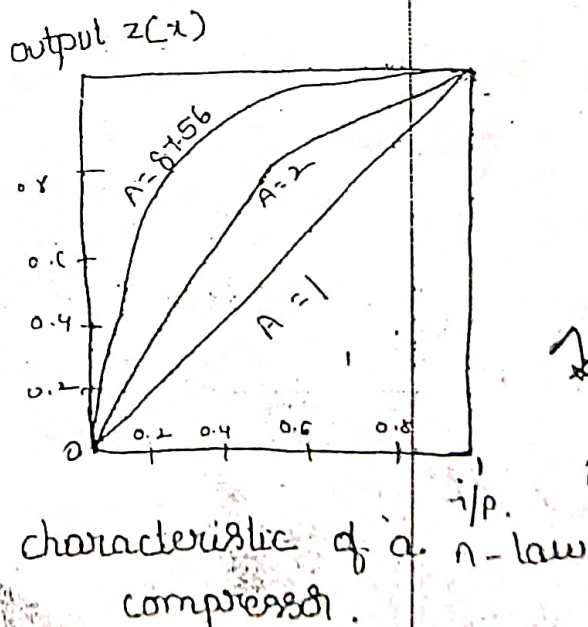 output z(x)
A=87.56
0.8
A=2
0.6
A=1
0.4
0.2
0
0.2 0.4 0.6 0.8
1
i/p.
characteristic of a. A-law
compressor.